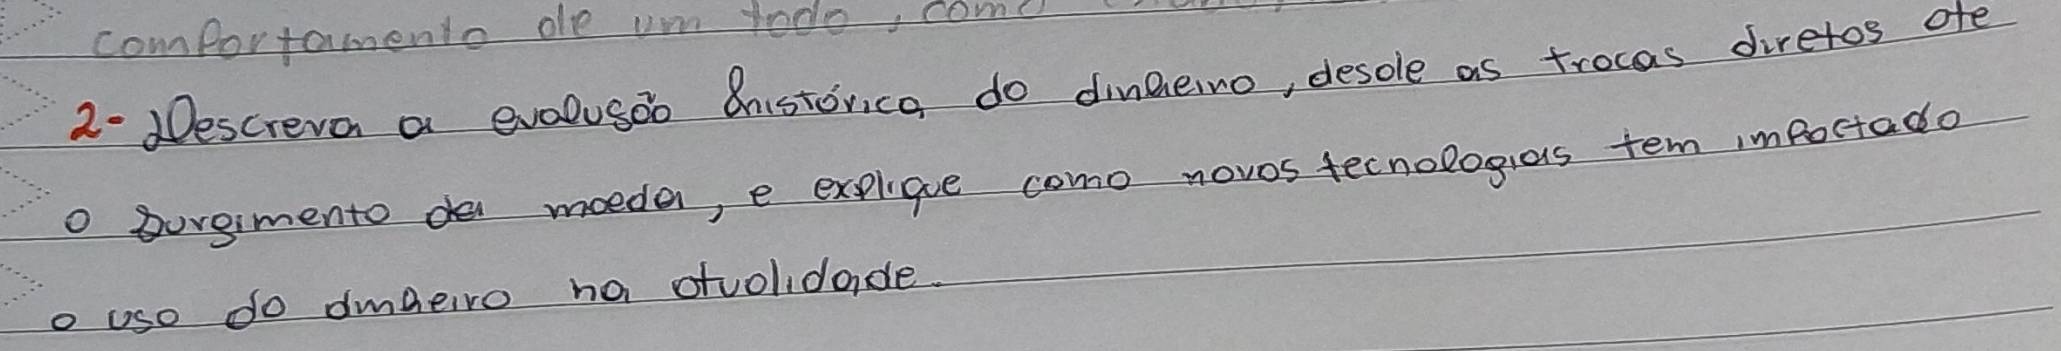 comportamento de um todo, como
2- Descreva a evolusão historica do dinheiro, desde as trocas diretas ate
o surgimento da moeda, e explique como novas tecnologias tem impactado
o uso do dinheiro na atualidade.